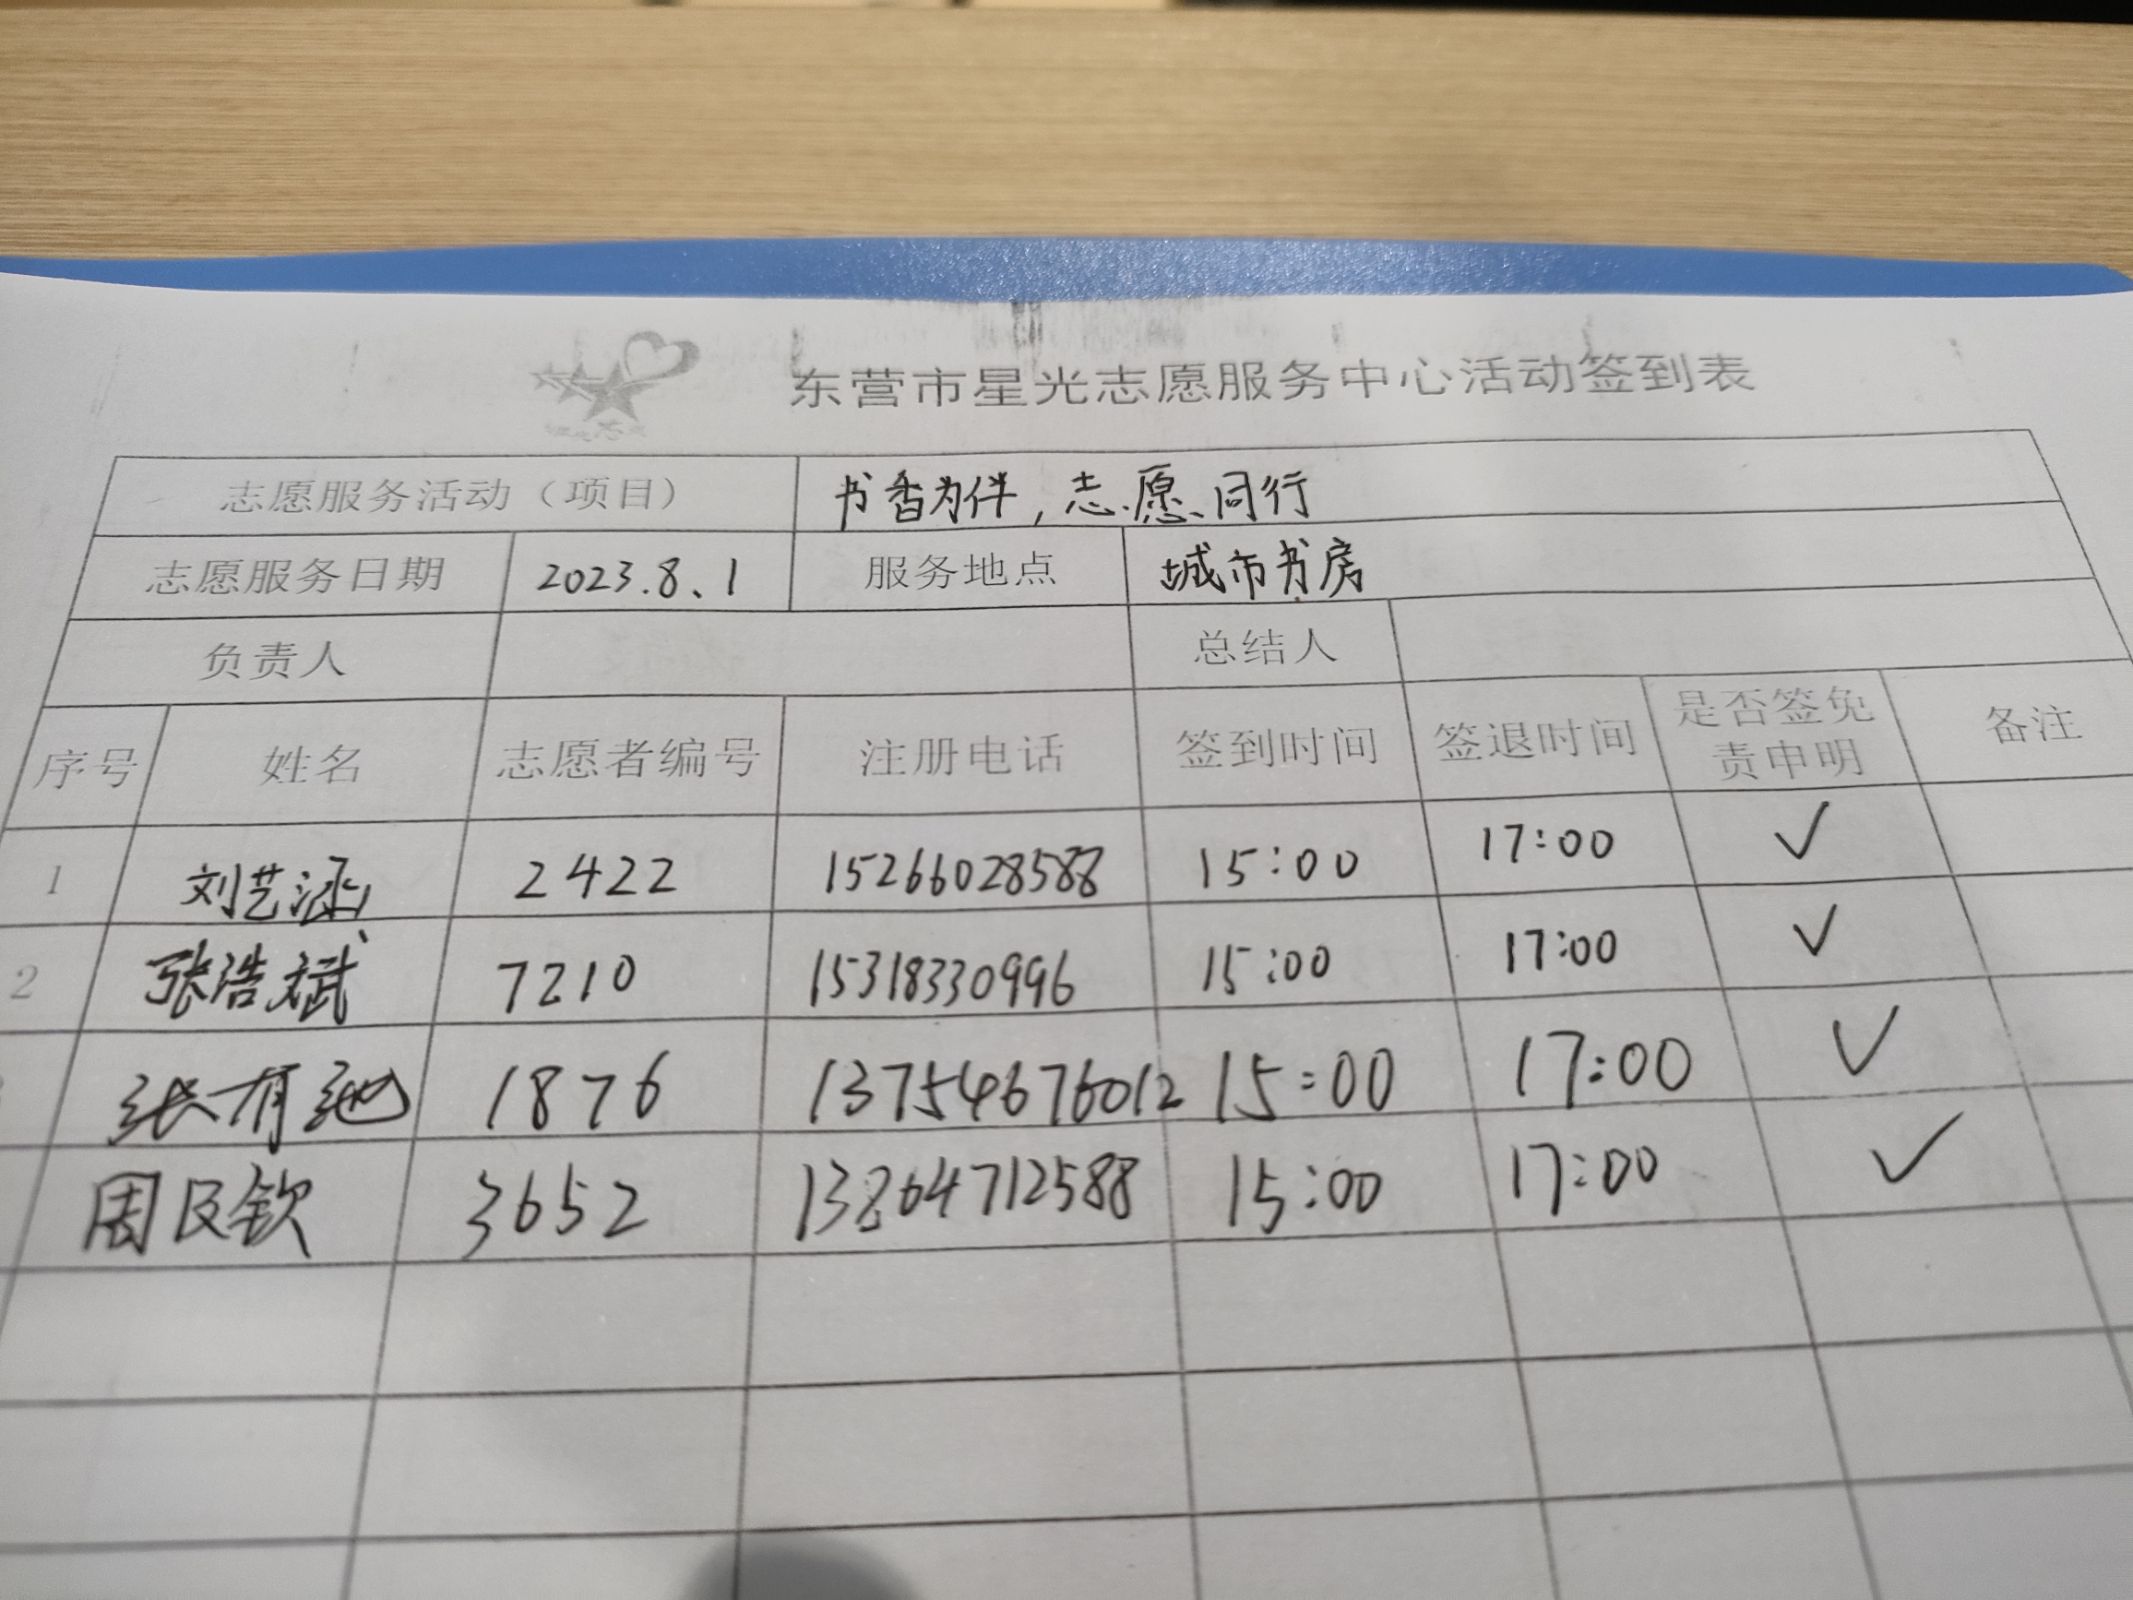 东营市星光志愿服务中心活动签到表
志愿服务活动（项目） 书香为伴,志愿同行
志愿服务日期 2023.8、1 服务地点 城市书房
负责人 总结人
序号 姓名 志愿者编号 注册电话 签到时间 签退时间 是否签免责申明 备注
1 刘艺涵 2422 15266028588 15:00 17:00 ✓
2 张浩斌 7210 15318330996 15:00 17:00 ✓
张有弛 1876 13754676012 15:00 17:00 ✓
3652 13264712588 15:00 17:00 ✓